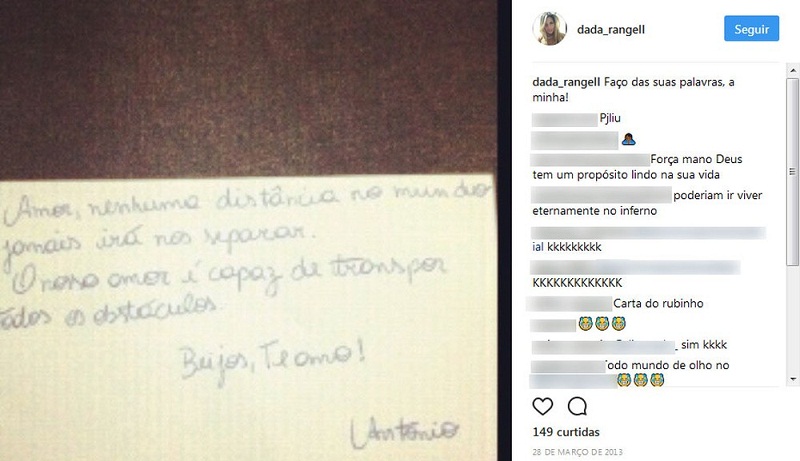 Amor, nenhuma distância no mundo
jamais irá nos separar.
O nosso amor é capaz de transpor
todos os obstáculos.
Beijos, Te amo!
Antônio
dada_rangell
Seguir
dada_rangell Faço das suas palavras, a
minha!
Pjliu
Força mano Deus
tem um propósito lindo na sua vida
poderiam ir viver
eternamente no inferno
ial kkkkkkkkk
KKKKKKKKKKKKK
Carta do rubinho
sim kkkk
Todo mundo de olho no
149 curtidas
28 DE MARÇO DE 2013